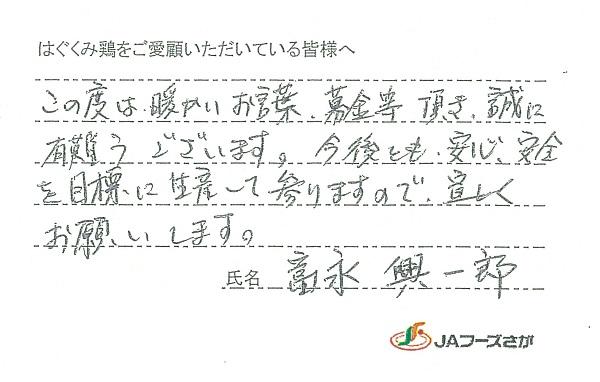 はぐくみ鶏をご愛顧いただいている皆様へ
この度は、暖かいお言葉、募金等頂き、誠に
有難うございます。今後とも、安心、安全
を目標に生産して参りますので、宜しく
お願いします。
氏名 富永 興一郎
JAフーズさが